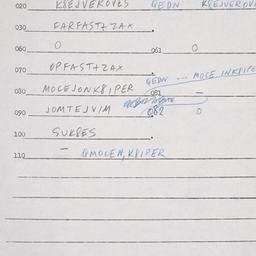 020 KREJVEROVES GEDN KREJVEROV
030 FARFAST+ZAX
060 O 061 O
070 OPFAST+ZAX
GEDN ... MOCE INKRIPE
080 MOCEJONKRIPER 081 —
090 JOMTEJVIM 082 O
100 SUKSES
110 — @MOCEN,KRIPER